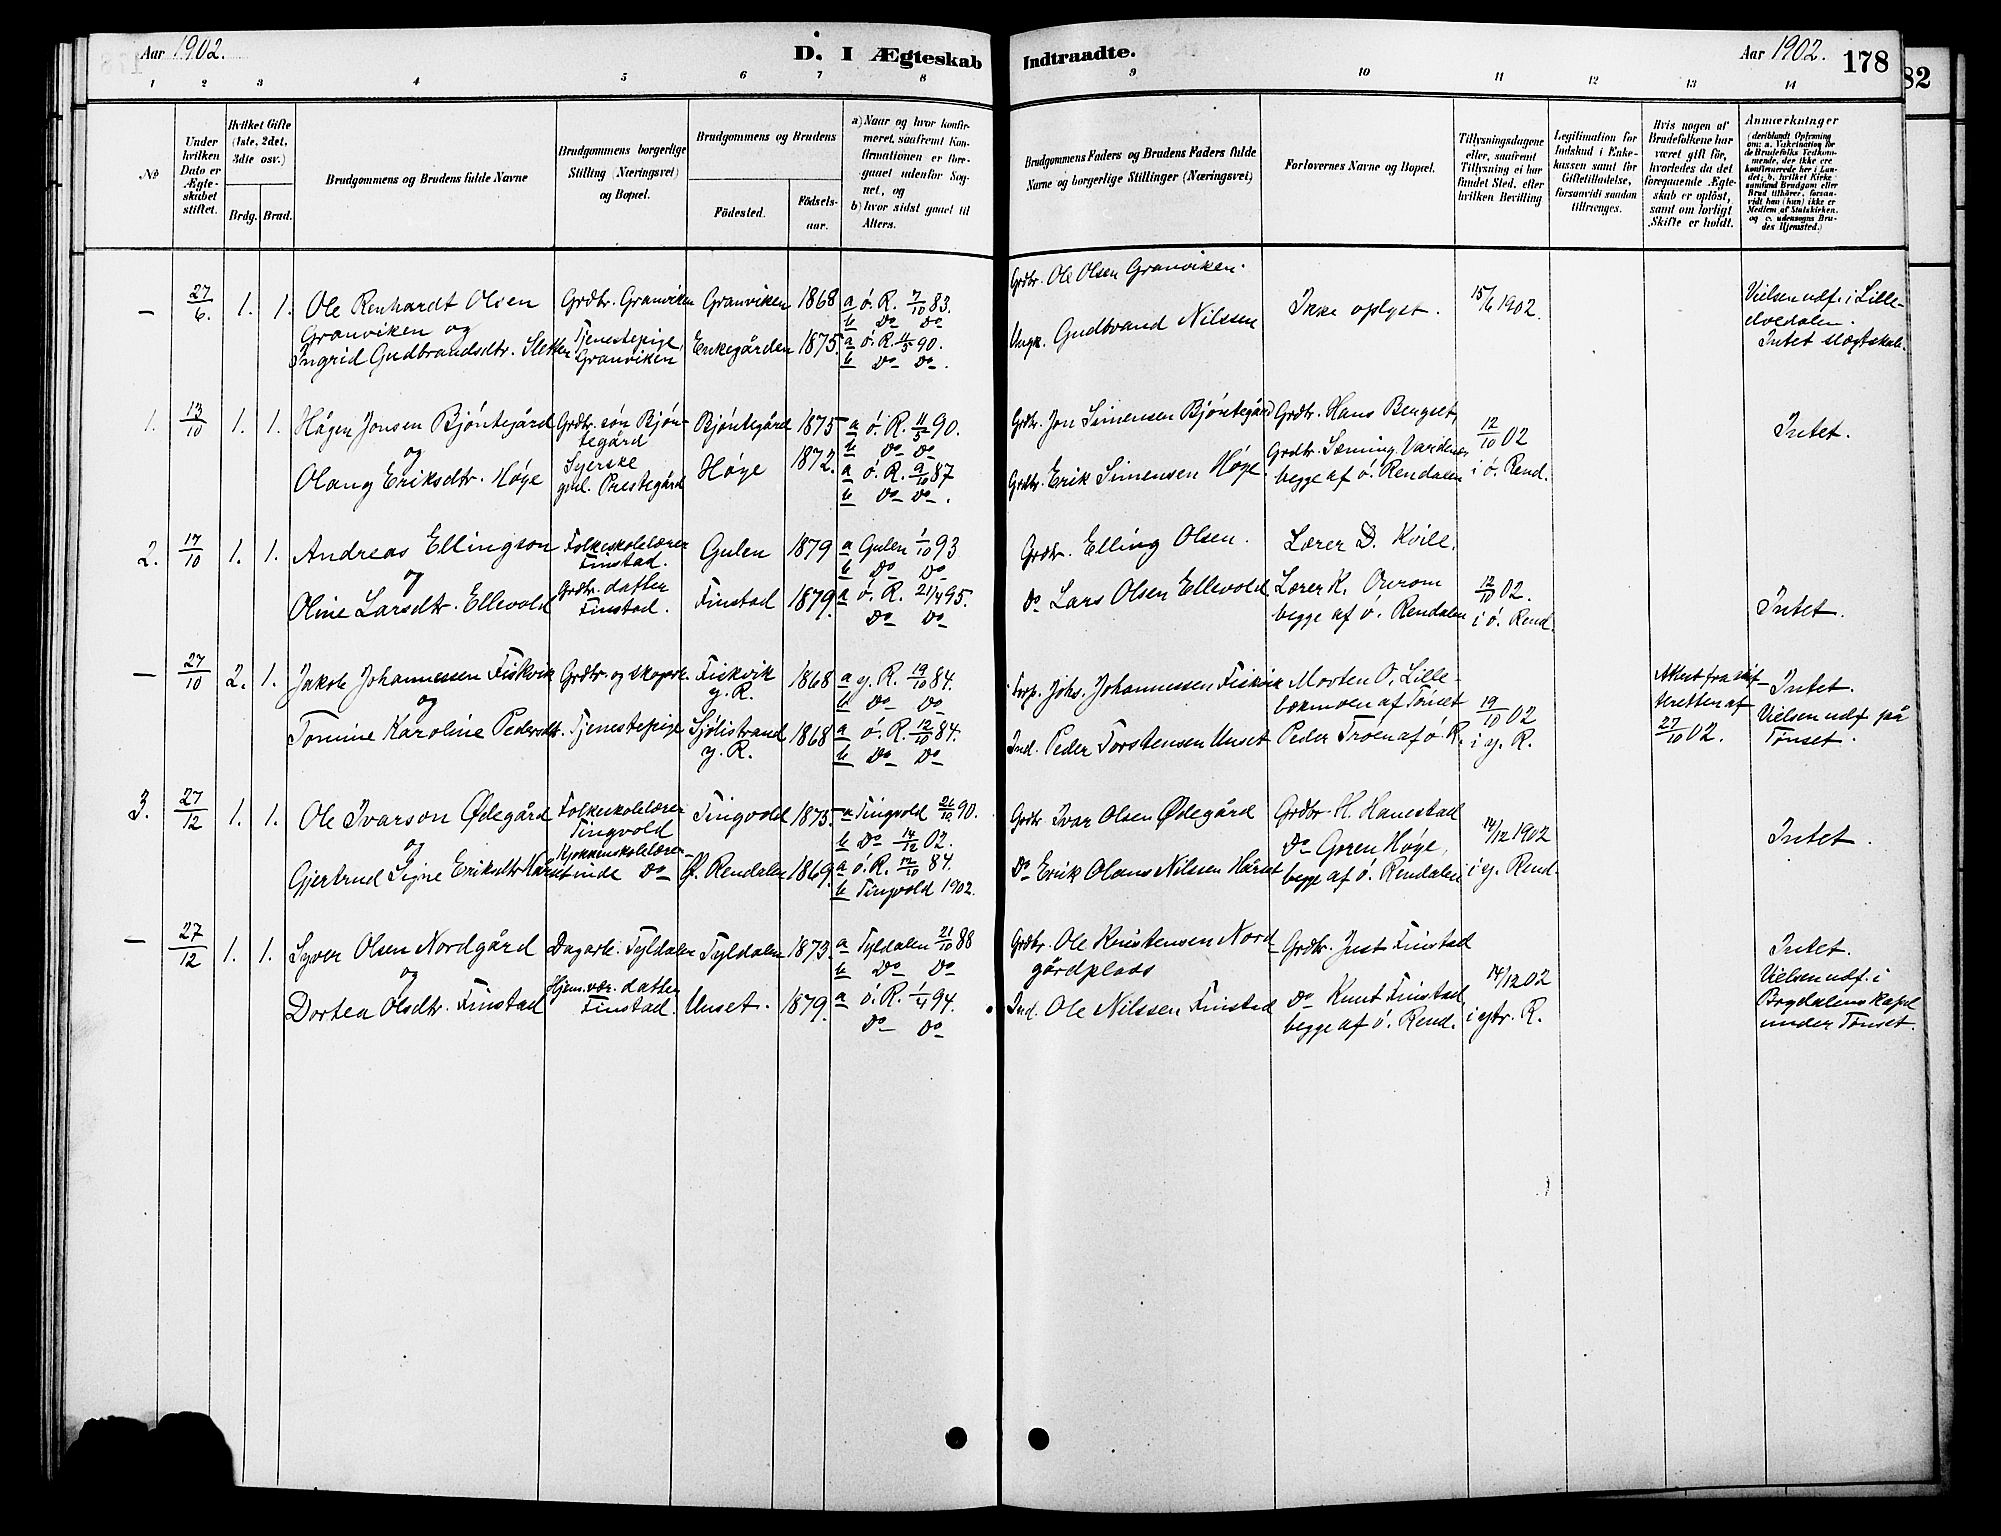 Aar 1902.
D. I Ægteskab Indtraadte.
Aar 1902. 178
82
1 2 3 4 5 6 7 8 9 10 11 12 13 14
No
Under hvilken Dato er Ægteskabet stiftet.
Hvilket Gifte (1ste, 2det, 3die osv.)
Brdg. Brud.
Brudgommens og Brudens fulde Navne
Brudgommens borgerlige Stilling (Næringsvei) og Bopæl.
Brudgommens og Brudens
Födested.
Födsels-aar.
a) Naar og hvor konfirmeret, saafremt Konfirmationen er foregaaet udenfor Sognet, og
b) hvor sidst gaaet til Alters.
Brudgommens Faders og Brudens Faders fulde Navne og borgerlige Stillinger (Næringsvei)
Forlovernes Navne og Bopæl.
Tillysningsdagene eller, saafremt Tillysning ei har fundet Sted, efter hvilken Bevilling
Legitimation for Indskud i Enkekassen samt for Giftetilladelse, forsaavidt saadan tiltrænges.
Hvis nogen af Brudefolkene har været gift før, hvorledes da det foregaaende Ægteskab er opløst, samt om lovligt Skifte er holdt.
Anmærkninger
(deriblandt Opførsning om: a. Vakcination for de Brudefolks Vedkommende, der ikke ere konfirmerede her i Landet; b. hvilket Kirkesamfund Brudgom eller Brud tilhører, forsaavidt han (hun) ikke er Medlem af Statskirken, og c. udensogns Brudes Hjemsted.)
— 27/6. 1. 1. Ole Renhardt Olsen Granviken og
Grdbr. Granviken Granviken 1868 a ó. R. 7/10 83.
b Do Do
Ingrid Gudbrandsdtr. Sletten Tjenestepige, Granviken Enkegården 1875. a ó. R. 11/5 90.
b Do Do.
Grdbr. Ole Olsen Granviken.
Ungk. Gudbrand Nilssen
Ikke oplyst.
15/6 1902.
Vielsen udf. i Lille-
elvedalen.
Intet slægtskab.
1. 13/10 1. 1. Hågen Jonsen Bjöntegård Grdbr. sön Bjön-
tegård Bjöntegård 1875 a ó. R. 11/5 90.
b Do Do
og
Olaug Eriksdtr. Höye Syerske
Prestegård Höye 1872. a ó. R. 9/10 87
b Do Do.
Grdbr. Jon Simensen Bjöntegård
Grdbr. Erik Simensen Höye.
Grdbr. Hans Bengset,
Grdbr. Sæming Vardenæs
begge af ó. Rendalen
12/10 02
i ó. Rend.
Intet.
2. 17/10 1. 1. Andreas Ellingson Folkeskolelærer
Finstad. Gulen 1879 a Gulen 1/10 93
b Do Do
og
Oline Larsdtr. Ellevold Grdbr. datter
Finstad. Finstad 1879. a ó. R. 21/4 95.
Do Do
Grdbr. Elling Olsen.
Do Lars Olsen Ellevold
Lærer D. Kvile.
Lærer K. Överom
begge af ó. Rendalen
12/10 02.
i ó. Rend.
Intet.
— 27/10 2. 1. Jakob Johannessen Fiskvik Grdbr. og skogarb. Fiskvik
y. R. 1868 a y. R. 19/10 84.
b Do Do
og
Tomine Karoline Pedersdt. Tjenestepige Sjölistrand
y. R. 1868 a ó. R. 12/10 84.
b Do Do
Johs. Johannessen Fiskvik
Ind. Peder Torstensen Unset
Morten O. Lille-
bækmoen af Tönset
Peder Troen af ó. R.
19/10 02
i y. R.
Attest fra skif-
teretten af
27/10 02.
Intet.
Vielsen udf på
Tönset.
3. 27/12 1. 1. Ole Ivarson Ødegård Folkeskolelærer
Tingvold Tingvold 1875. a Tingvold 26/10 90.
b Do 14/12 02.
og
Gjertrud Signe Eriksdtr Harset Kjökkenskolelærer-
inde Do Ø. Rendalen 1869. a ó. R. 12/10 84.
b Tingvold 1902.
Grdbr. Ivar Olsen Ødegård
Do Erik Olaus Nilsen Harset
Grdbr. H. Hanestad
Do Goren Höye,
begge af ó. Rendalen
14/12 1902
i y. Rend.
Intet.
— 27/12 1. 1. Syver Olsen Nordgård Dagarb. Tyldalen Tyldalen 1873. a Tyldalen 21/10 88
b Do Do
og
Dortea Olsdtr. Finstad Hjem.vær. datter
Finstad. Unset. 1879. a ó. R. 1/4 94.
Do Do
Grdbr. Ole Kristensen Nord-
gårdplads
Ind. Ole Nilssen Finstad
Grdbr. Just Finstad
Do Knut Finstad,
begge af ó. Rend.
14/12 02
i ytr. R.
Intet.
Vielsen udf. i
Brydalens kapel
under Tönset.